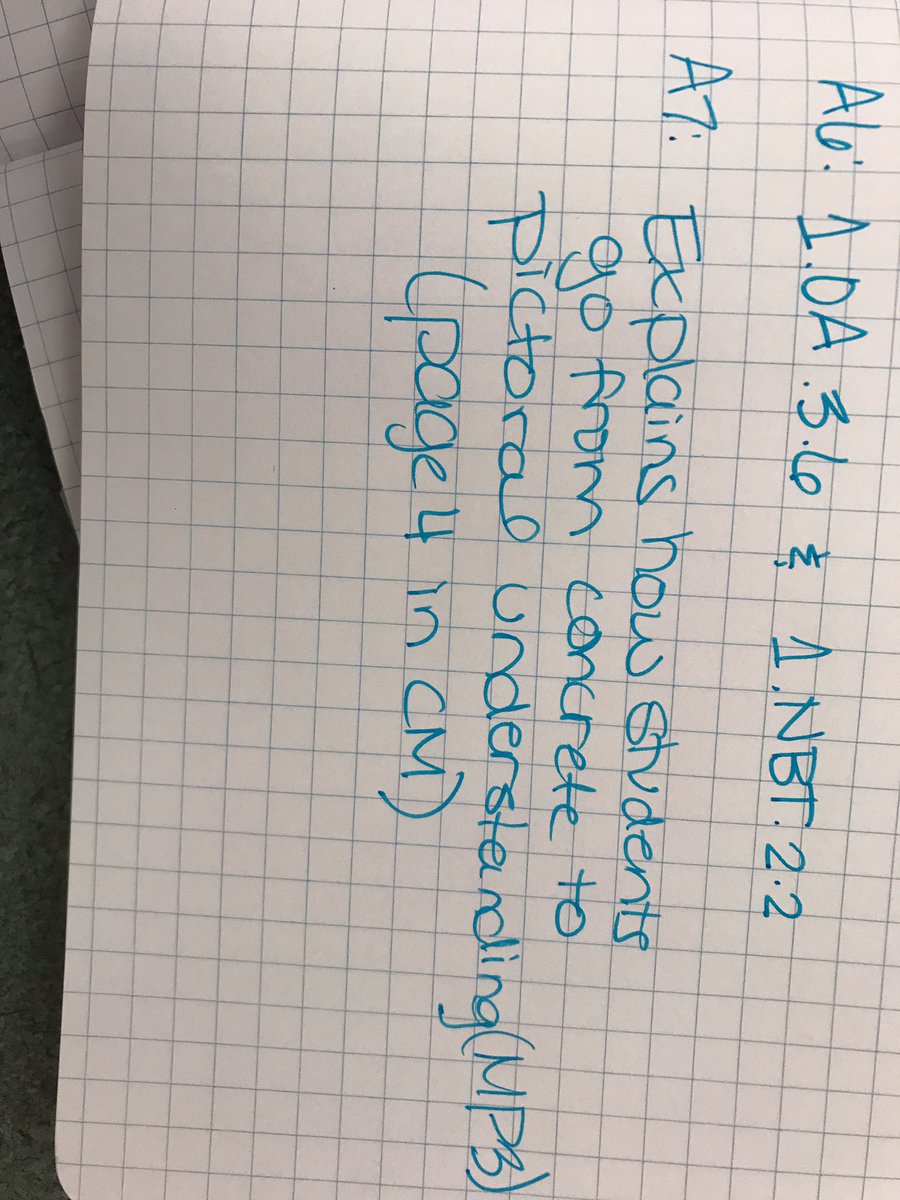 A6: 1.OA.3.6 & 1.NBT.2.2
A7: Explains how students
go from concrete to
pictoral understanding (MP3)
(page 4 in CM)